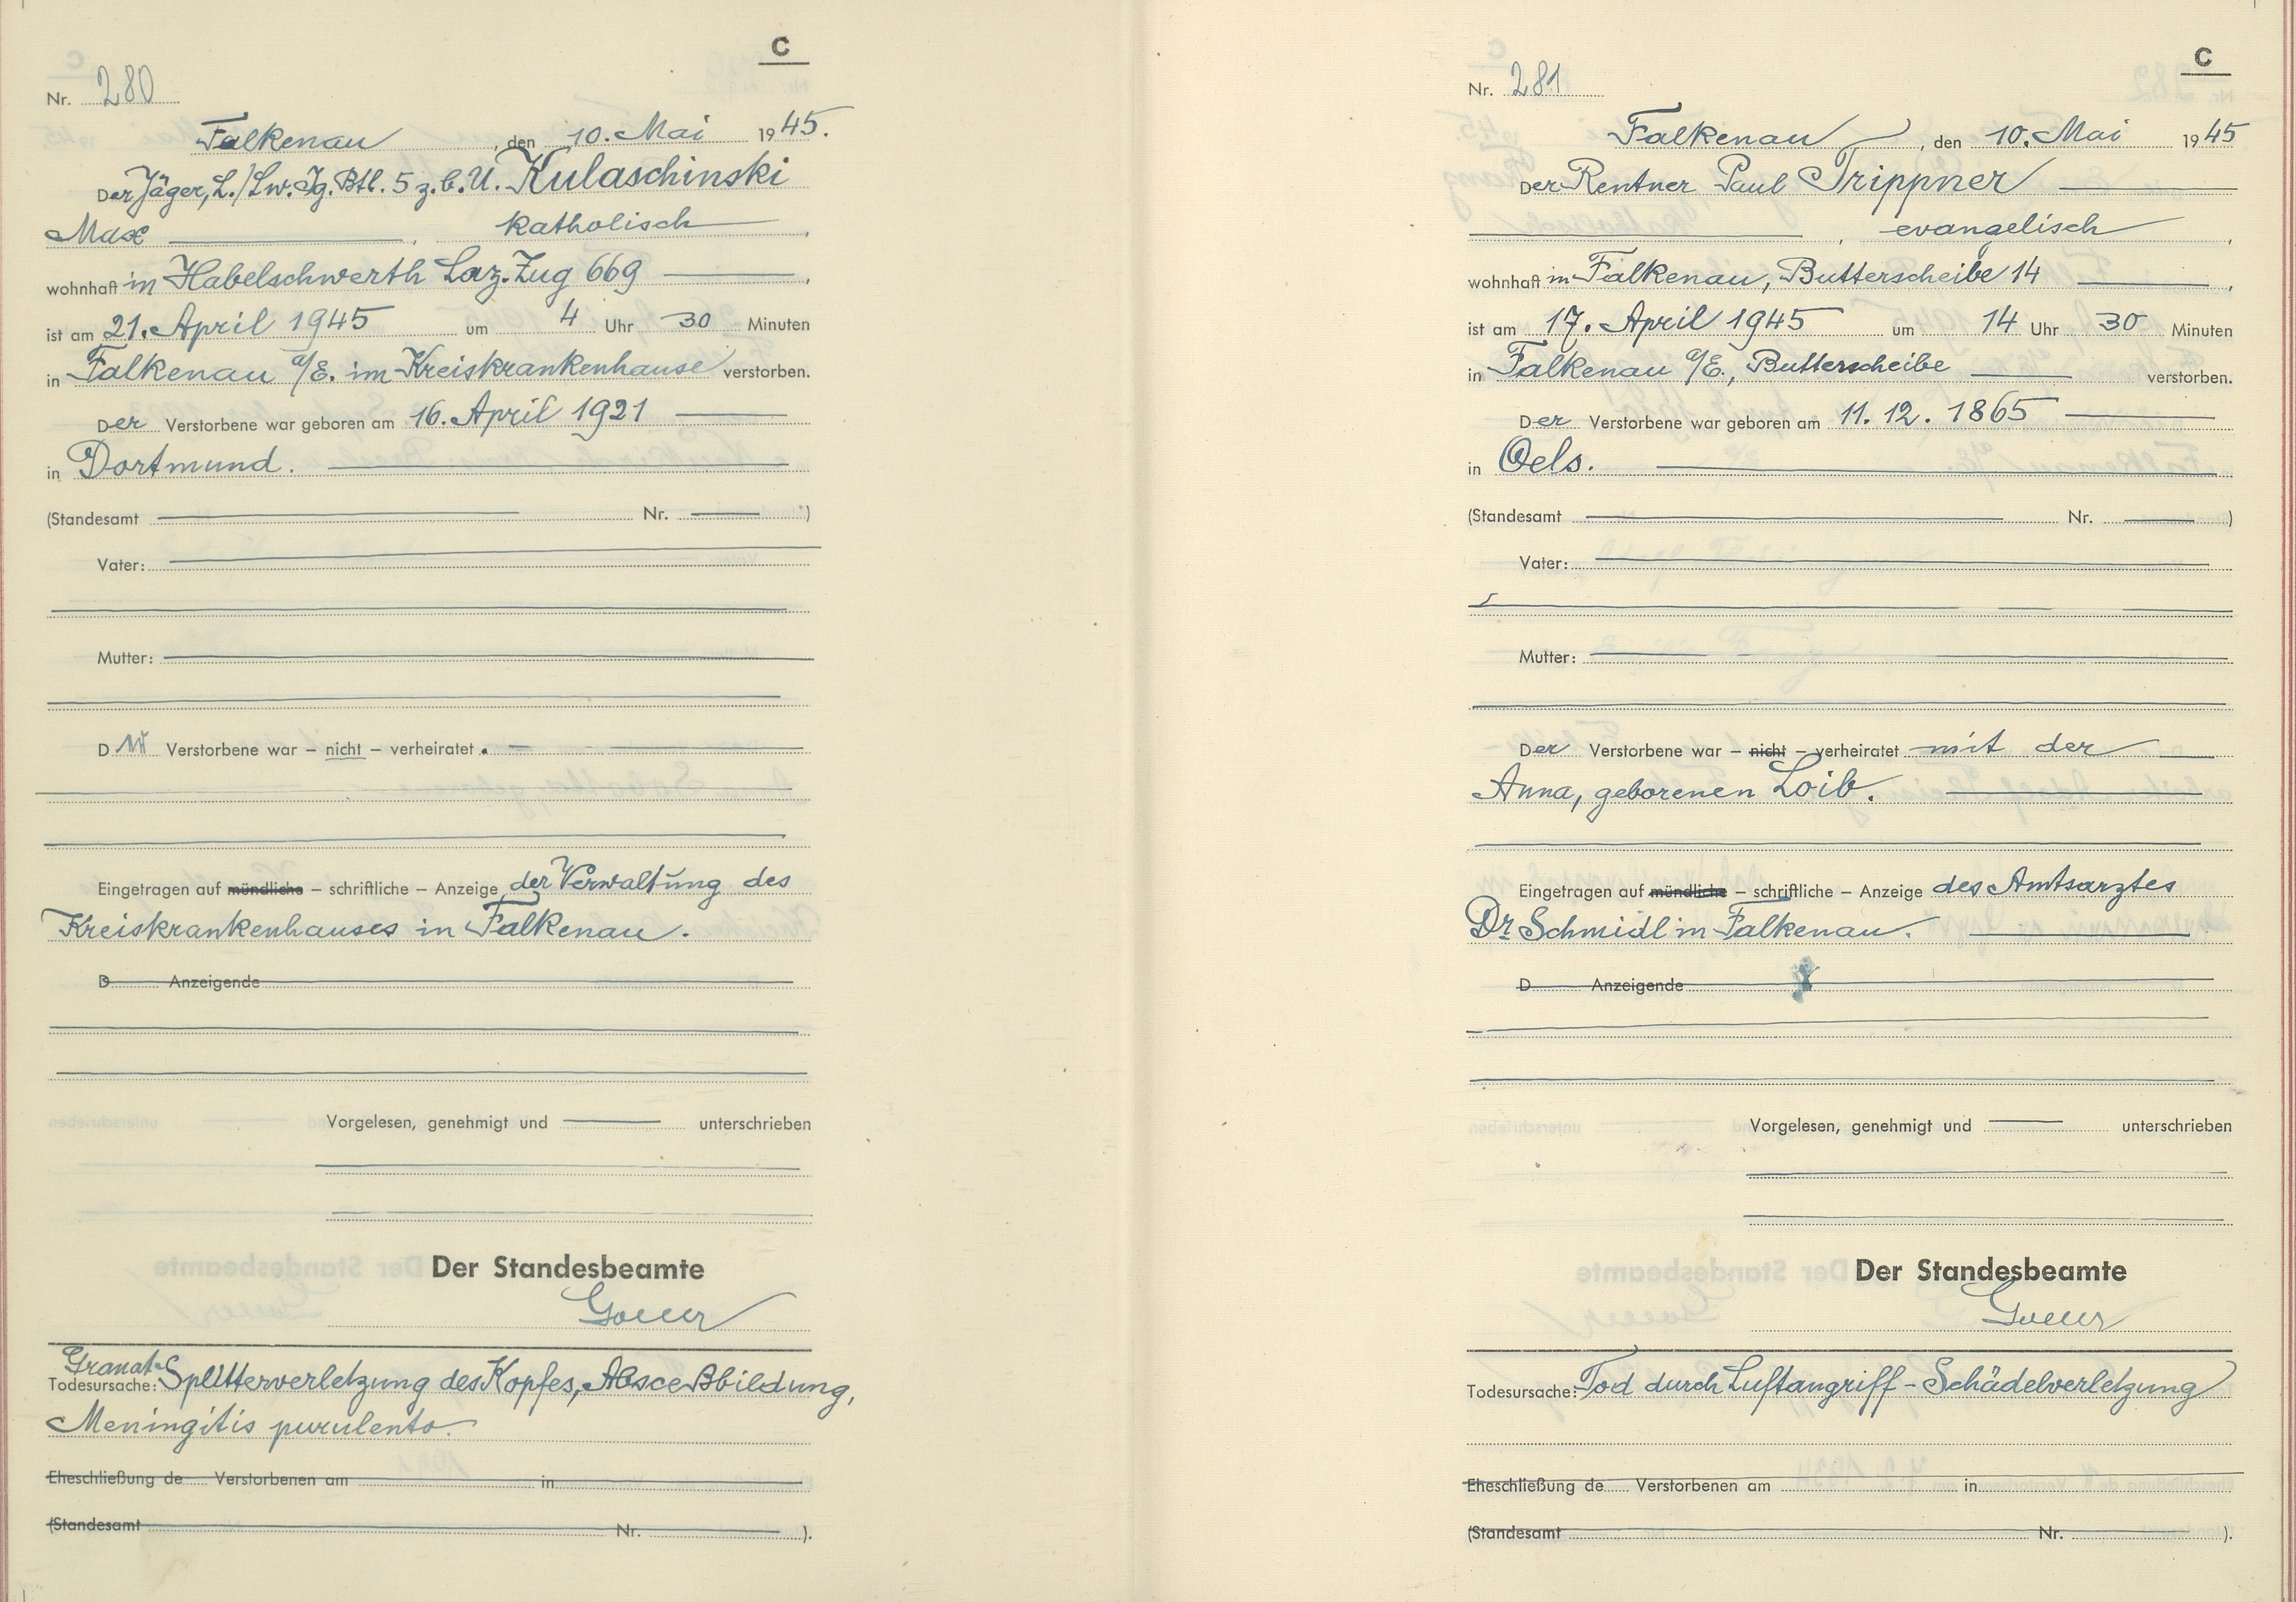 C
Nr. 280
Falkenau, den 10. Mai 1945.
Der Jäger, L./Lw. Jg. Btl. 5 z.b.U. Kulaschinski
Max, katholisch,
wohnhaft in Habelschwerth Laz. Zug 669,
ist am 21. April 1945 um 4 Uhr 30 Minuten
in Falkenau a/E. im Kreiskrankenhause verstorben.
Der Verstorbene war geboren am 16. April 1921
in Dortmund.
(Standesamt Nr. )
Vater:
Mutter:
D Verstorbene war – nicht – verheiratet.
Eingetragen auf mündliche – schriftliche – Anzeige der Verwaltung des
Kreiskrankenhauses in Falkenau.
D Anzeigende
Vorgelesen, genehmigt und unterschrieben
Der Standesbeamte
Granat-
Todesursache: Splitterverletzung des Kopfes, Absceßbildung,
Meningitis purulenta.
Eheschließung de Verstorbenen am in
(Standesamt Nr. ).
C
Nr. 281
Falkenau, den 10. Mai 1945
Der Rentner Paul Trippner
, evangelisch,
wohnhaft in Falkenau, Butterscheibe 14,
ist am 17. April 1945 um 14 Uhr 30 Minuten
in Falkenau a/E., Butterscheibe verstorben.
Der Verstorbene war geboren am 11. 12. 1865
in Oels.
(Standesamt Nr. )
Vater:
Mutter:
Der Verstorbene war – nicht – verheiratet mit der
Anna, geborenen Loib.
Eingetragen auf mündliche – schriftliche – Anzeige des Amtsarztes
Dr Schmidl in Falkenau.
D Anzeigende
Vorgelesen, genehmigt und unterschrieben
Der Standesbeamte
Todesursache: Tod durch Luftangriff - Schädelverletzung
Eheschließung de Verstorbenen am in
(Standesamt Nr. ).